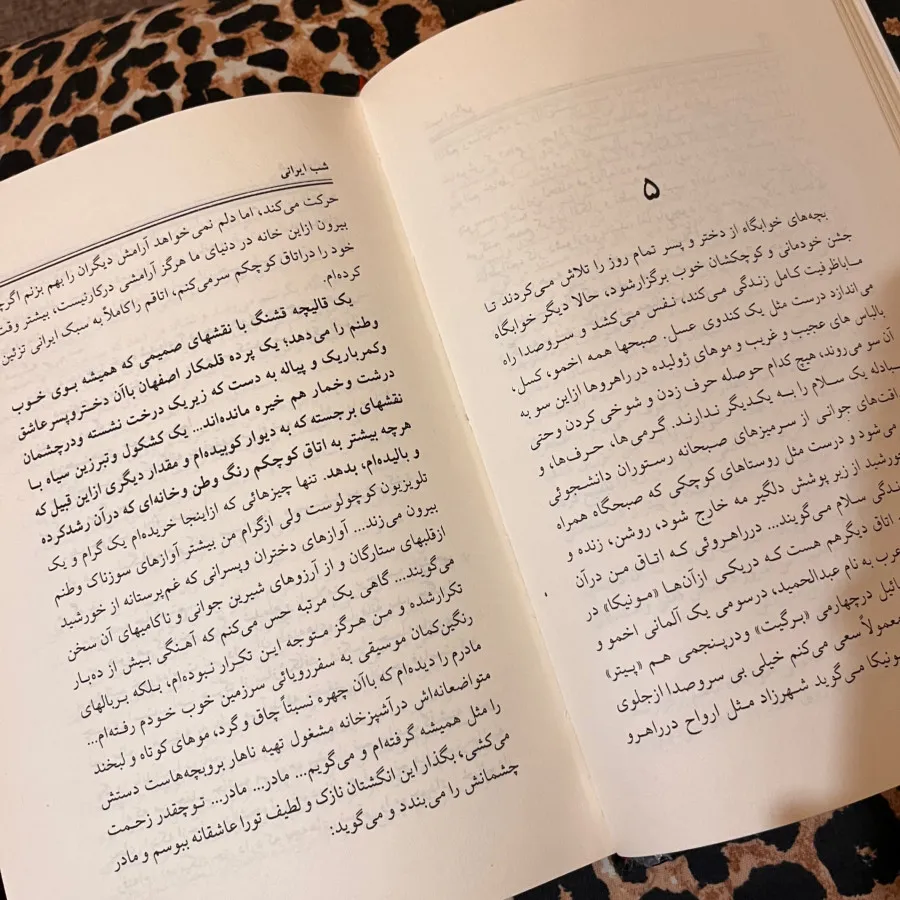 ۵
بچه‌های خوابگاه از دختر و پسر تمام روز را تلاش می‌کردند تا
جشن خودمانی و کوچکشان خوب برگزارشود، حالا دیگر خوابگاه
ماباظرفیت کامل زندگی می‌کند، نفس می‌کشد و سروصدا راه
می‌اندازد درست مثل یک کندوی عسل. صبحها همه اخمو، کسل،
بالباس های عجیب و غریب و موهای ژولیده در راهروها ازاین سو به
آن سو می‌روند، هیچ کدام حوصله حرف زدن و شوخی کردن وحتی
مبادله یک سلام را به یکدیگر ندارند. گرمی‌ها، حرف‌ها، و
جوانی از سرمیزهای صبحانه رستوران دانشجوئی
می‌شود و درست مثل روستاهای کوچکی که صبحگاه همراه
خورشید از زیر پوشش دلگیر مه خارج شود، روشن، زنده و
سلام می‌گویند... درراهروئی که اتاق من درآن
اتاق دیگرهم هست که دریکی ازآن‌ها «مونیکا» در
عرب به نام عبدالحمید، درسومی یک آلمانی اخمو و
درچهارمی «برگیت» ودرپنجمی هم «پیتر»
معمولاً سعی می‌کنم خیلی بی سروصدا ازجلوی
مونیکا می‌گوید شهرزاد مثل ارواح درراهرو
شب ایرانی
حرکت می‌کند، اما دلم نمی‌خواهد آرامش دیگران را بهم بزنم اگرچه
بیرون ازاین خانه در دنیای ما هرگز آرامشی درکارنیست، بیشتر وقت
خود را دراتاق کوچکم سرمی‌کنم، اتاقم راکاملاً به سبک ایرانی تزئین
کرده‌ام.
یک قالیچه قشنگ با نقشهای صمیمی که همیشه بوی خوب
وطنم را می‌دهد؛ یک پرده قلمکار اصفهان باآن دختروپسرعاشق
وکمرباریک و پیاله به دست که زیریک درخت نشسته ودرچشمان
درشت وخمار هم خیره مانده‌اند... یک کشکول وتبرزین سیاه با
نقشهای برجسته که به دیوار کوبیده‌ام و مقدار دیگری ازاین قبیل که
هرچه بیشتر به اتاق کوچکم رنگ وطن وخانه‌ای که درآن رشدکرده
و بالیده‌ام، بدهد. تنها چیزهائی که ازاینجا خریده‌ام یک گرام و یک
تلویزیون کوچولوست ولی ازگرام من بیشتر آوازهای سوزناک وطنم
بیرون می‌زند... آوازهای دختران وپسرانی که غم‌پرستانه از خورشید
ازقلبهای ستارگان و از آرزوهای شیرین جوانی و ناکامیهای آن سخن
می‌گویند... گاهی یک مرتبه حس می‌کنم که آهنگی بیش از ده‌بار
تکرارشده و من هرگز متوجه این تکرار نبوده‌ام، بلکه بربالهای
رنگین‌کمان موسیقی به سفررویائی سرزمین خوب خودم رفته‌ام...
مادرم را دیده‌ام که باآن چهره نسبتاً چاق و گرد، موهای کوتاه و لبخند
متواضعانه‌اش درآشپزخانه مشغول تهیه ناهار بروبچه‌هاست دستش
را مثل همیشه گرفته‌ام و می‌گویم... مادر... مادر... توچقدر زحمت
می‌کشی، بگذار این انگشتان نازک و لطیف تورا عاشقانه ببوسم و مادر
چشمانش را می‌بندد و می‌گوید: